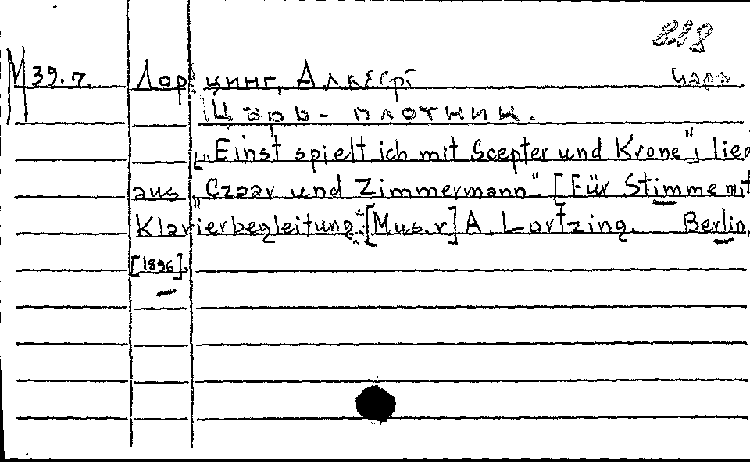 818
M 39.7. Лорцинг, Альберт Царь
Царь-плотник.
„Einst spielt ich mit Scepter und Krone", lied
aus „Czaar und Zimmermann" [Für Stimme mit
Klavierbegleitung. [Mus. v] A. Lortzing. Berlin,
[1896].